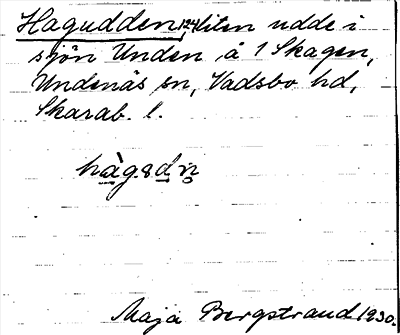 Hagudden, 124 liten udde i
sjön Unden, å 1 Skagen,
Undenäs sn, Vadsbo hd,
Skarab. l.
hàgɜdn̥
Maja Bergstrand 1930.